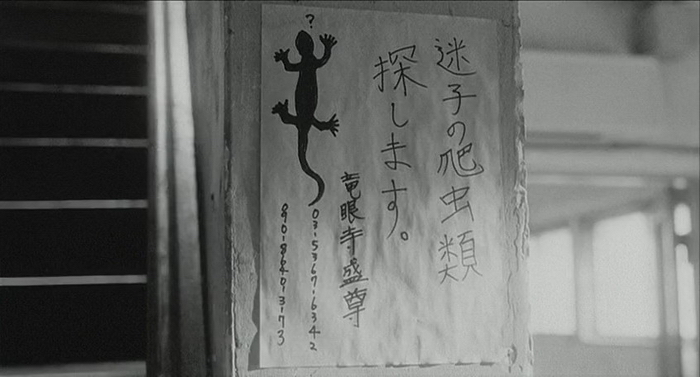 迷子の爬虫類
探します。
竜眼寺盛尊
03-5367-6342
090-8640-3173
?